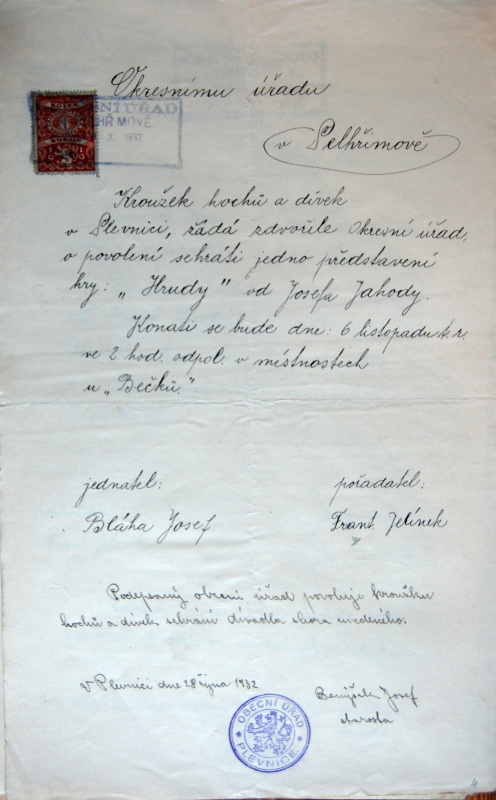 Okresnímu úřadu
NÍ ÚŘAD
HŘIMOVĚ.
X. 1932
v Pelhřimově
Kroužek hochů a dívek
v Plevnici, řádá zdvořile Okresní úřad,
o povolení sehráti jedno představení
hry: „Hrudy" od Josefa Jahody.
Konati se bude dne: 6 listopadu t.r.
ve 2 hod. odpol. v místnostech
u „Bečků."
jednatel: pořadatel:
Bláha Josef Frant. Jelínek
Podepsaný obecní úřad povoluje kroužku
hochů a dívek sehrání divadla shora uvedeného.
V Plevnici dne 28 října 1932
Josef
starosta
OBECNÍ ÚŘAD
PLEVNICE.
4